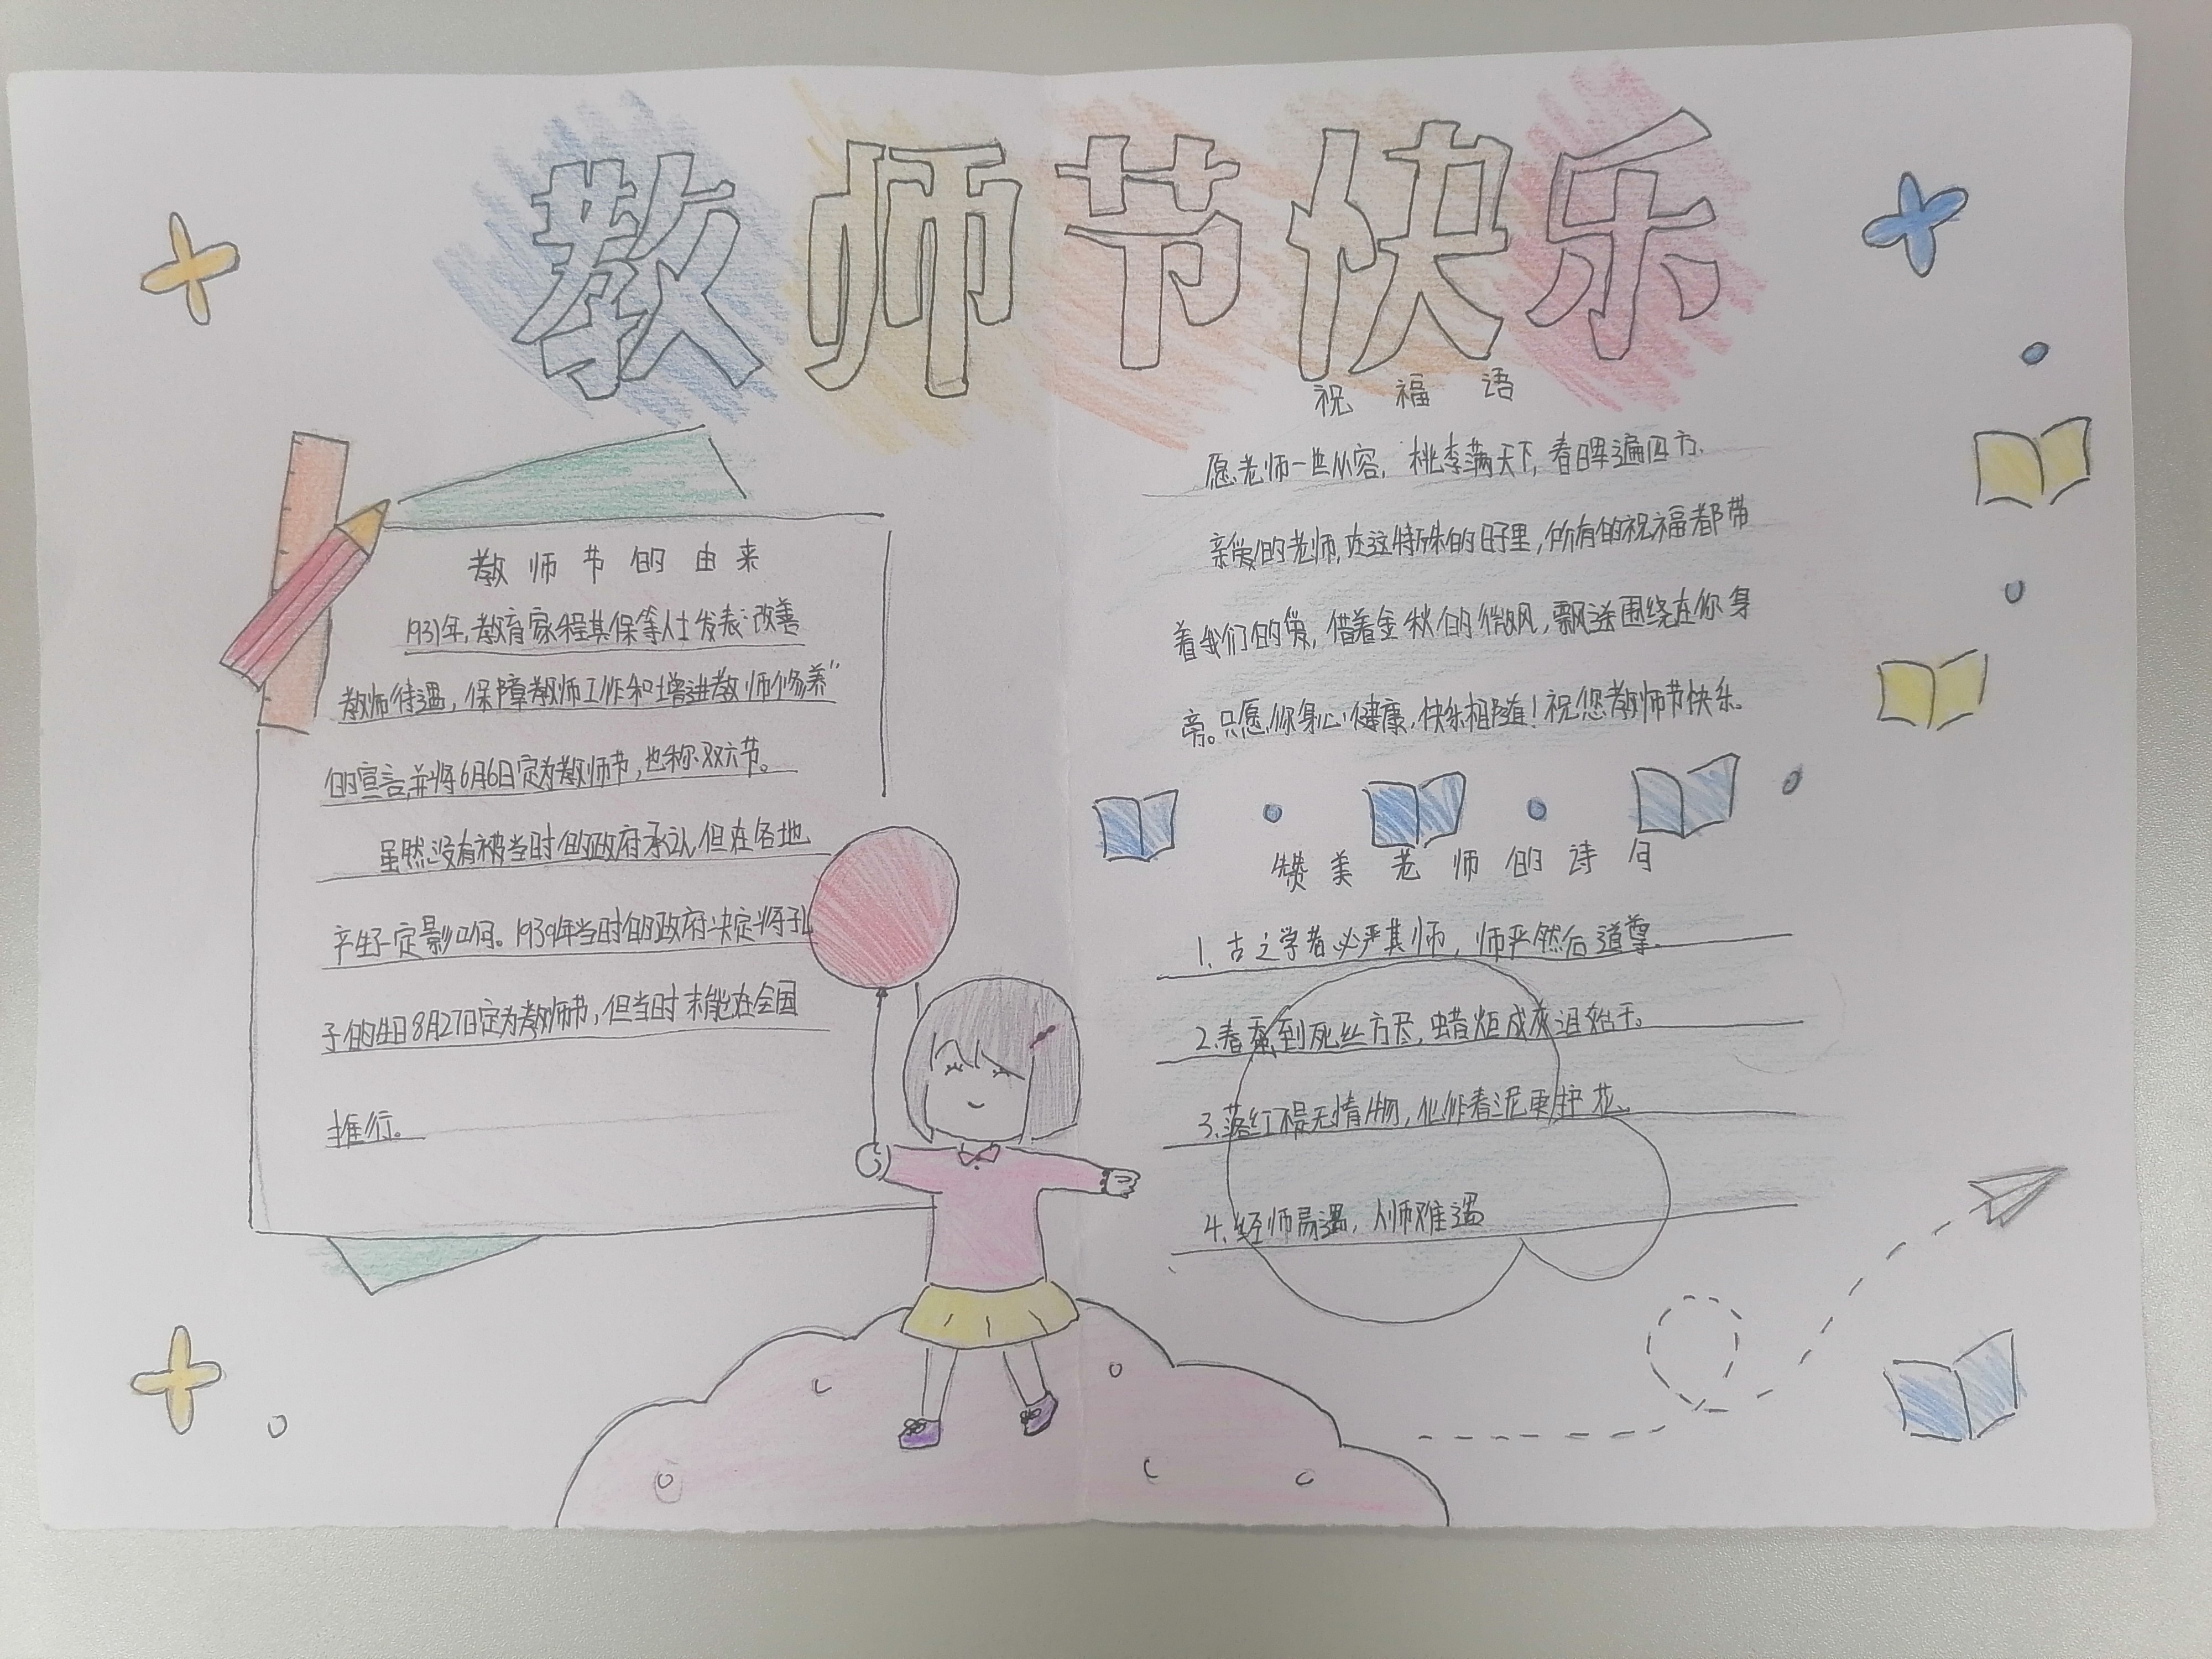 教师节快乐
教师节的由来
1931年,教育家程其保等人士发表:改善
教师待遇,保障教师工作和增进教师修养”
的宣言,并将6月6日定为教师节,也称双六节。
虽然没有被当时的政府承认,但在各地
产生一定影响。1939年当时的政府决定将孔
子的生日8月27日定为教师节,但当时未能在全国
推行。
祝福语
愿老师一世从容,桃李满天下,春晖遍四方.
亲爱的老师,在这特殊的日子里,所有的祝福都带
着我们的爱,借着金秋的微风,飘送围绕在你身
旁。只愿你身心健康,快乐相随!祝您教师节快乐。
赞美老师的诗句
1.古之学者必严其师,师严然后道尊.
2.春蚕到死丝方尽,蜡炬成灰泪始干。
3.落红不是无情物,化作春泥更护花。
4.经师易遇,人师难遇